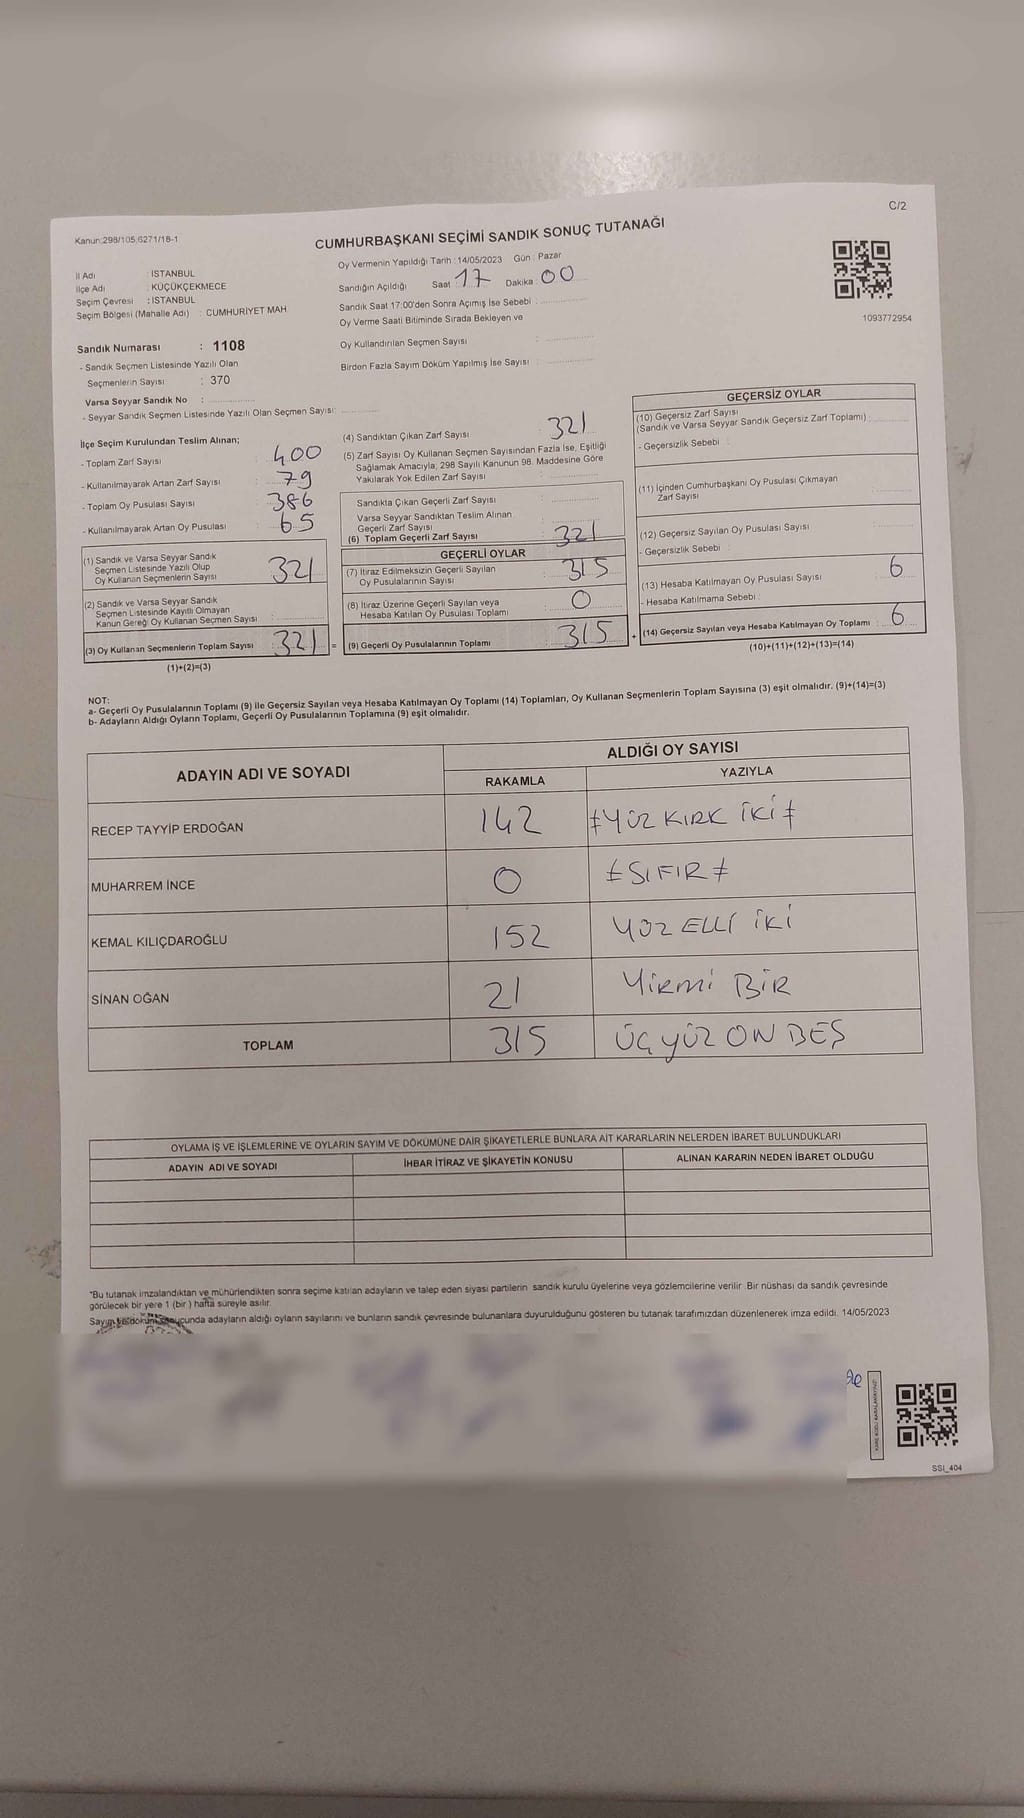 C/2
Kanun:298/105;6271/18-1
CUMHURBAŞKANI SEÇİMİ SANDIK SONUÇ TUTANAĞI
İl Adı : İSTANBUL
İlçe Adı : KÜÇÜKÇEKMECE
Seçim Çevresi : İSTANBUL
Seçim Bölgesi (Mahalle Adı) : CUMHURİYET MAH.
Oy Vermenin Yapıldığı Tarih : 14/05/2023 Gün : Pazar
Sandığın Açıldığı Saat : 17 Dakika : 00
Sandık Saat 17:00'den Sonra Açımış İse Sebebi :
Oy Verme Saati Bitiminde Sırada Bekleyen ve
Oy Kullandırılan Seçmen Sayısı :
Birden Fazla Sayım Döküm Yapılmış İse Sayısı :
1093772954
Sandık Numarası : 1108
- Sandık Seçmen Listesinde Yazılı Olan
Seçmenlerin Sayısı : 370
Varsa Seyyar Sandık No :
- Seyyar Sandık Seçmen Listesinde Yazılı Olan Seçmen Sayısı:
İlçe Seçim Kurulundan Teslim Alınan;
- Toplam Zarf Sayısı : 400
- Kullanılmayarak Artan Zarf Sayısı : 79
- Toplam Oy Pusulası Sayısı : 386
- Kullanılmayarak Artan Oy Pusulası : 65
(1) Sandık ve Varsa Seyyar Sandık
Seçmen Listesinde Yazılı Olup
Oy Kullanan Seçmenlerin Sayısı : 321
(2) Sandık ve Varsa Seyyar Sandık
Seçmen Listesinde Kayıtlı Olmayan
Kanun Gereği Oy Kullanan Seçmen Sayısı :
(3) Oy Kullanan Seçmenlerin Toplam Sayısı : 321 =
(1)+(2)=(3)
(4) Sandıktan Çıkan Zarf Sayısı : 321
(5) Zarf Sayısı Oy Kullanan Seçmen Sayısından Fazla İse, Eşitliği
Sağlamak Amacıyla, 298 Sayılı Kanunun 98. Maddesine Göre
Yakılarak Yok Edilen Zarf Sayısı :
Sandıkta Çıkan Geçerli Zarf Sayısı :
Varsa Seyyar Sandıktan Teslim Alınan
Geçerli Zarf Sayısı :
(6) Toplam Geçerli Zarf Sayısı : 321
GEÇERLİ OYLAR
(7) İtiraz Edilmeksizin Geçerli Sayılan
Oy Pusulalarının Sayısı : 315
(8) İtiraz Üzerine Geçerli Sayılan veya
Hesaba Katılan Oy Pusulası Toplamı : 0
(9) Geçerli Oy Pusulalarının Toplamı : 315 +
GEÇERSİZ OYLAR
(10) Geçersiz Zarf Sayısı
(Sandık ve Varsa Seyyar Sandık Geçersiz Zarf Toplamı) :
- Geçersizlik Sebebi :
(11) İçinden Cumhurbaşkanı Oy Pusulası Çıkmayan
Zarf Sayısı :
(12) Geçersiz Sayılan Oy Pusulası Sayısı :
- Geçersizlik Sebebi :
(13) Hesaba Katılmayan Oy Pusulası Sayısı : 6
- Hesaba Katılmama Sebebi :
(14) Geçersiz Sayılan veya Hesaba Katılmayan Oy Toplamı : 6
(10)+(11)+(12)+(13)=(14)
NOT:
a- Geçerli Oy Pusulalarının Toplamı (9) ile Geçersiz Sayılan veya Hesaba Katılmayan Oy Toplamı (14) Toplamları, Oy Kullanan Seçmenlerin Toplam Sayısına (3) eşit olmalıdır. (9)+(14)=(3)
b- Adayların Aldığı Oyların Toplamı, Geçerli Oy Pusulalarının Toplamına (9) eşit olmalıdır.
ADAYIN ADI VE SOYADI ALDIĞI OY SAYISI
RAKAMLA YAZIYLA
RECEP TAYYİP ERDOĞAN 142 ≠YÜZ KIRK İKİ≠
MUHARREM İNCE 0 ≠SIFIR≠
KEMAL KILIÇDAROĞLU 152 YÜZ ELLİ İKİ
SİNAN OĞAN 21 YİRMİ BİR
TOPLAM 315 ÜÇ YÜZ ON BEŞ
OYLAMA İŞ VE İŞLEMLERİNE VE OYLARIN SAYIM VE DÖKÜMÜNE DAİR ŞİKAYETLERLE BUNLARA AİT KARARLARIN NELERDEN İBARET BULUNDUKLARI
ADAYIN ADI VE SOYADI İHBAR İTİRAZ VE ŞİKAYETİN KONUSU ALINAN KARARIN NEDEN İBARET OLDUĞU
*Bu tutanak imzalandıktan ve mühürlendikten sonra seçime katılan adayların ve talep eden siyasi partilerin sandık kurulu üyelerine veya gözlemcilerine verilir. Bir nüshası da sandık çevresinde
görülecek bir yere 1 (bir) hafta süreyle asılır.
Sayım ve döküm sonucunda adayların aldığı oyların sayılarını ve bunların sandık çevresinde bulunanlara duyurulduğunu gösteren bu tutanak tarafımızdan düzenlenerek imza edildi. 14/05/2023
SSI_404